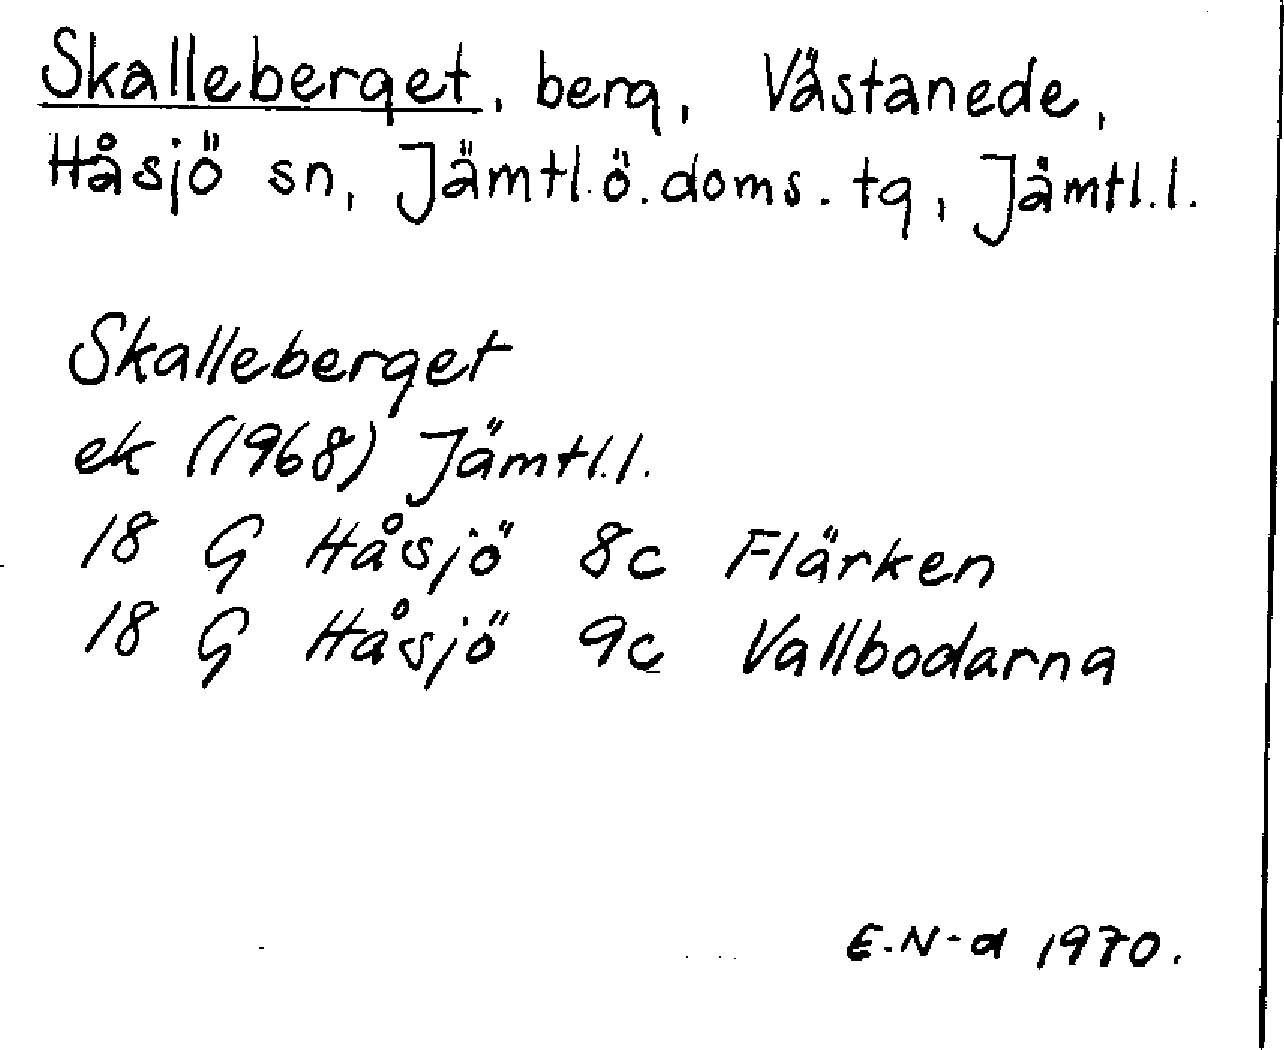 Skalleberget, berg, Västanede,
Håsjö sn, Jämtl.ö.doms.tg, Jämtl.l.
Skalleberget
ek (1968) Jämtl.l.
18 G Håsjö 8c Flärken
18 G Håsjö 9c Vallbodarna
E.N-d 1970.